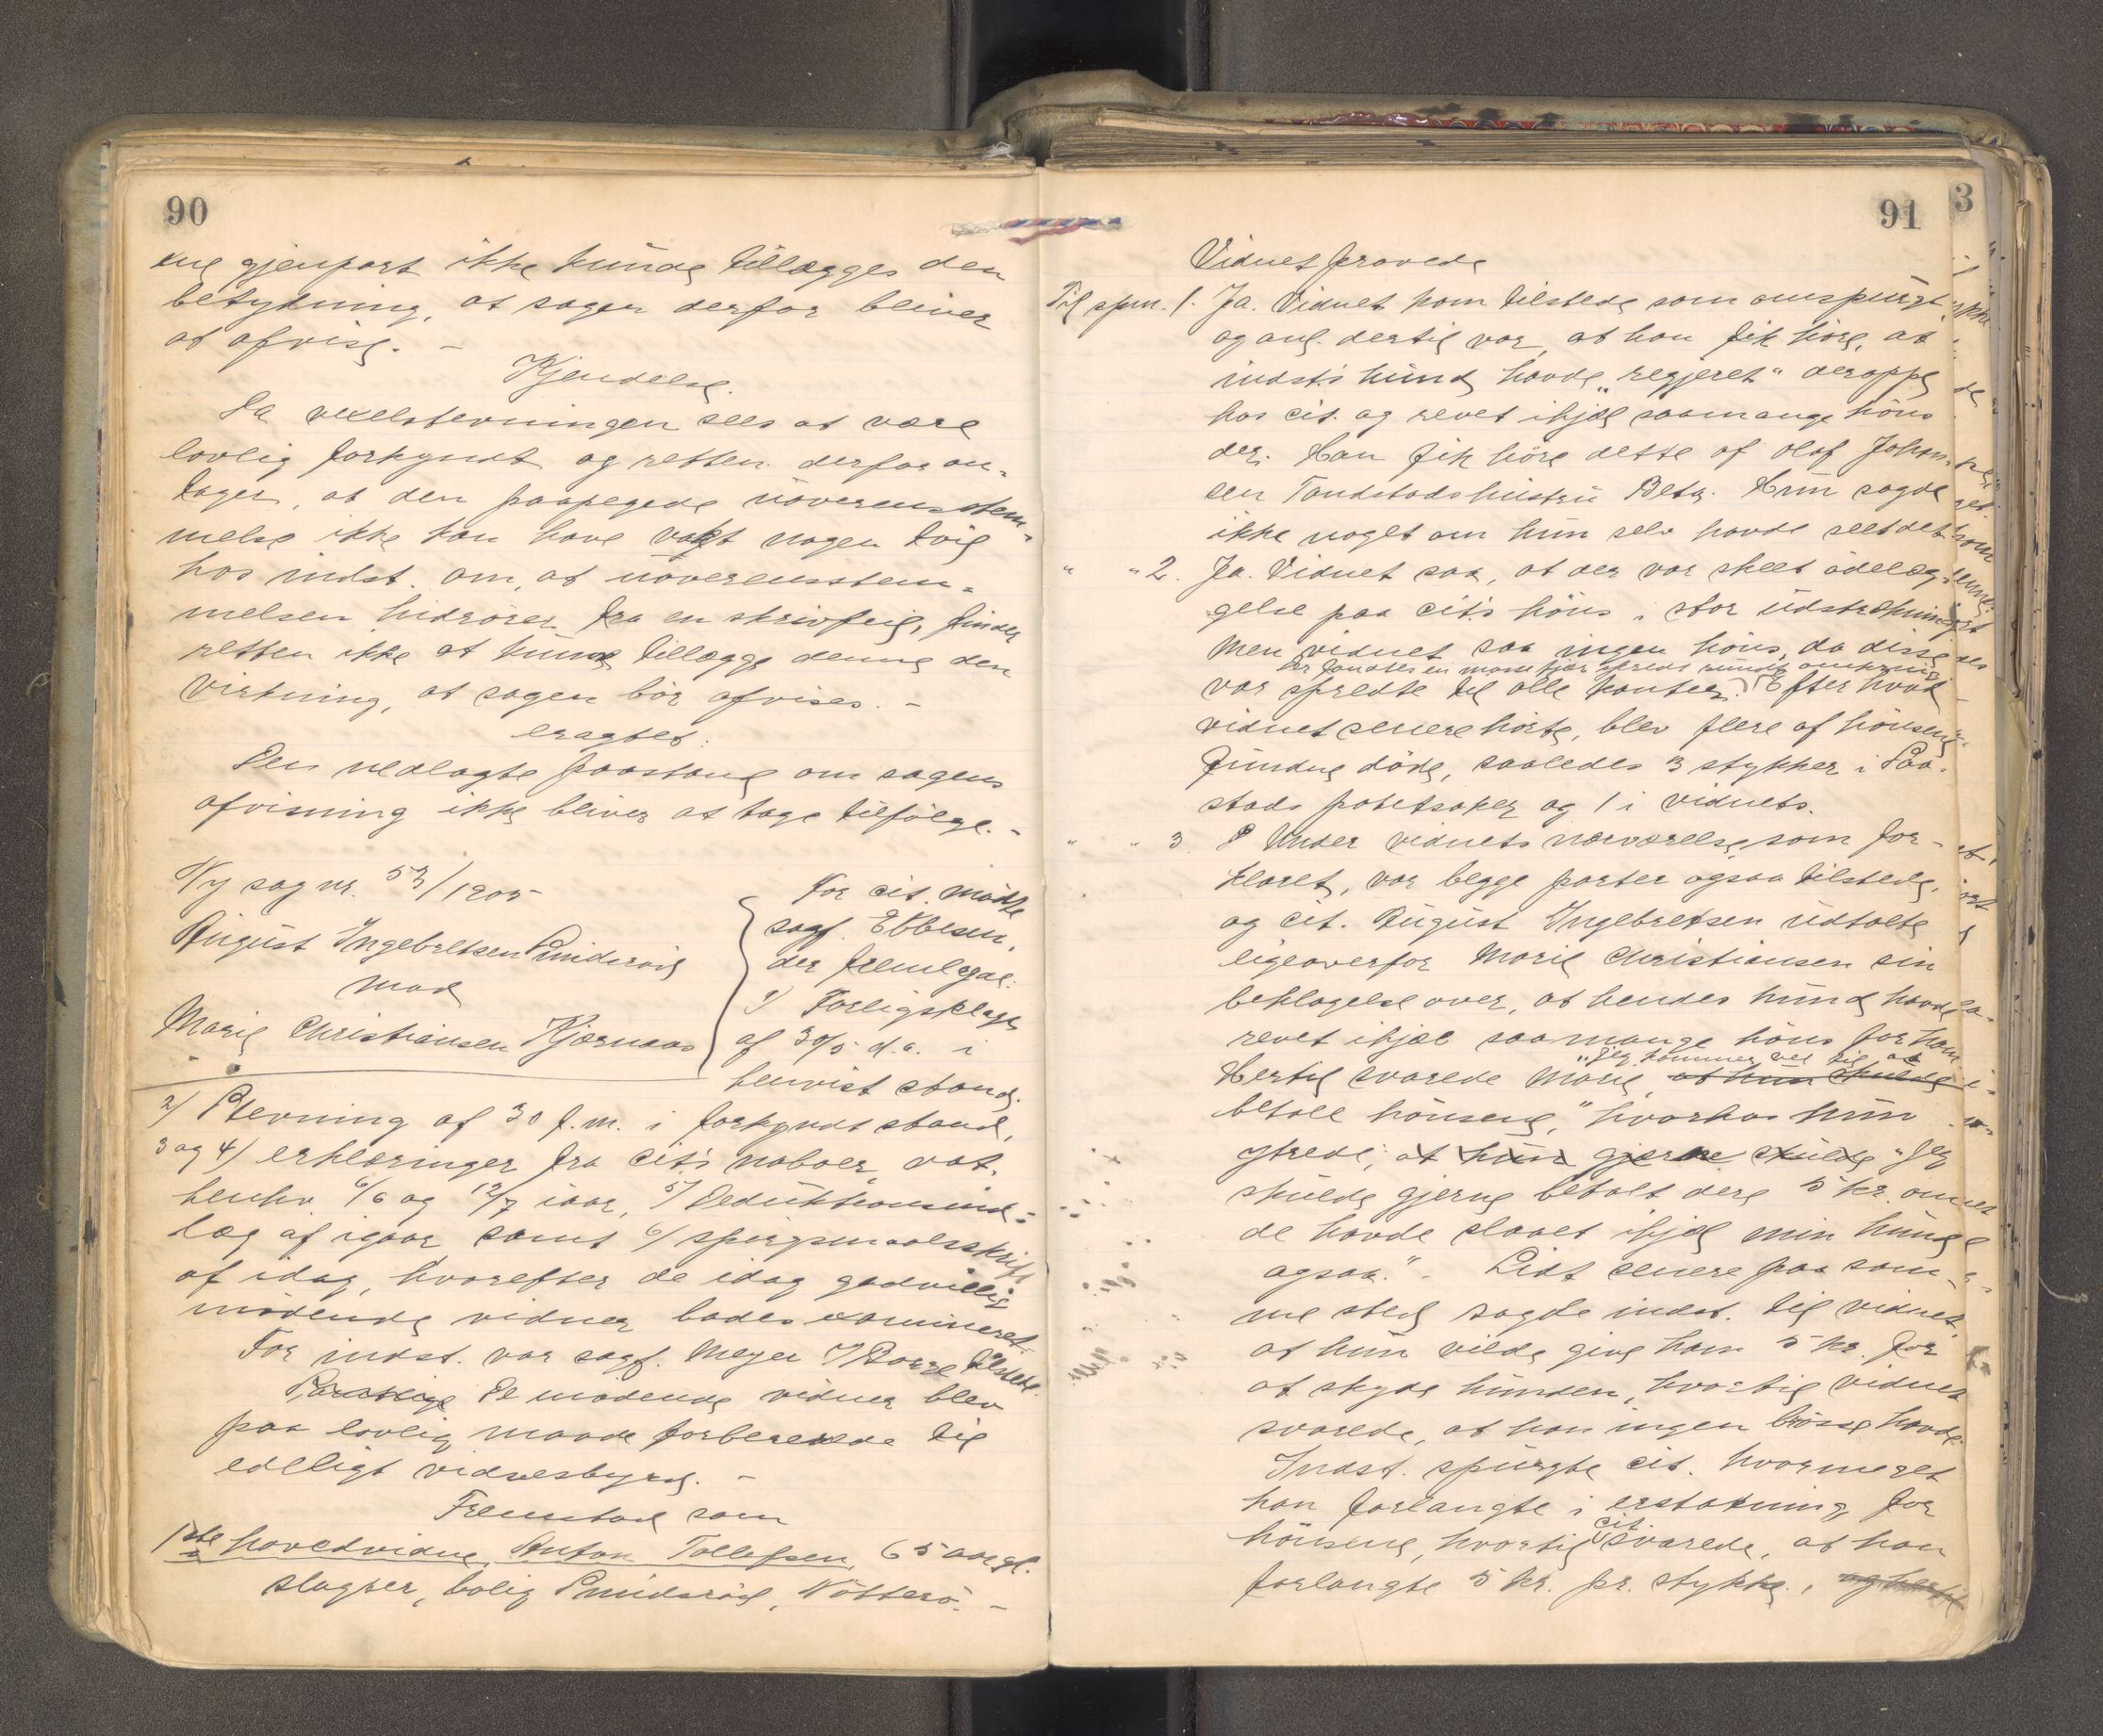 90
ene gjenpart ikke kunde tillægges den
betydning, at sagen derfor bliver
at afvise. –
Kjendelse.
Da vexelstevningen sees at være
lovlig forkyndt og retten derfor an-
tager, at den paapegede uoverensstem-
melse ikke kan have vakt nogen tvil
hos indst. om, at uoverensstem-
melsen hidrører fra en skrivfeil, finder
retten ikke at kunne tillægge denne den
virkning, at sagen bør afvises. –
eragtet:
Den nedlagte paastand om sagens
afvisning ikke bliver at tage tilfølge. –
Ny sag nr. 53/1905
August Ingebretsen Smidsrød
mod
Marie Christiansen Kjærnaas
For cit. mødte
sagf. Ebbesen,
der fremlagde:
1/ Forligsklage
af 30/5 d.a. i
henvist stand.
2/ Stevning af 30 f.m. i forkyndt stand,
3 og 4/ erklæringer fra cit's naboer, dat.
henhv. 6/6 og 12/7 iaar, 5/ Deduktionsind-
læg af igaar samt 6/ spørgsmaalsskrift
af idag, hvorefter de idag godvillig
mødende vidner bades examineret.
For indst. var sagf. Meyer i Borre tilstede.
De mødende vidner blev
paa lovlig maade forberedede til
edeligt vidnesbyrd. –
Fremstod som
1ste hovedvidne, Anton Tollefsen, 65 aar gl.
slagter, bolig Smidsrød, Nøtterø. –
91
3
Vidnet provede
Til spm. 1. Ja. Vidnet kom tilstede som omspurgt
og anl. dertil var, at han fik høre, at
indst's hund havde „regjeret" deroppe
hos cit. og revet ihjel saamange høns
der. Han fik høre dette af Olaf Johan-
sen Tandstads hustru Betz. Hun sagde
ikke noget om hun selv havde seet det.
" " 2. Ja. Vidnet saa, at der var skeet ødelæg-
gelse paa cit's høns i stor udstrækning
men vidnet saa ingen høns, da disse
der fandtes en masse fjær spredt rundt omkring
var spredte til alle kanter. Efter hvad
vidnet senere hørte, blev flere af hønsene
fundne døde, saaledes 3 stykker i Paa-
stads potetsaker og 1 i vidnets.
" " 3 Under vidnets nærværelse, som for-
klaret, var begge parter ogsaa tilstede,
og cit. August Ingebretsen udtalte
ligeoverfor Marie Christiansen sin
beklagelse over, at hendes hund havde
revet ihjel saamange høns for ham
„Jeg kommer vel til at
Hertil svarede Marie, at hun skulde
betale hønsene," hvorhos hun
ytrede, at hun gjerne skulde „Jeg
skulde gjerne betalt dere 5 kr. om
de havde slaaet ihjel min hund
ogsaa." – Lidt senere paa sam-
me sted sagde indst. til vidnet,
at hun vilde give ham 5 kr. for
at skyde hunden, hvortil vidnet
svarede, at han ingen bøsse havde.
Indst. spurgte cit. hvormeget
han forlangte i erstatning for
cit.
hønsene, hvortil svarede, at han
forlangte 5 kr. pr. stykke.